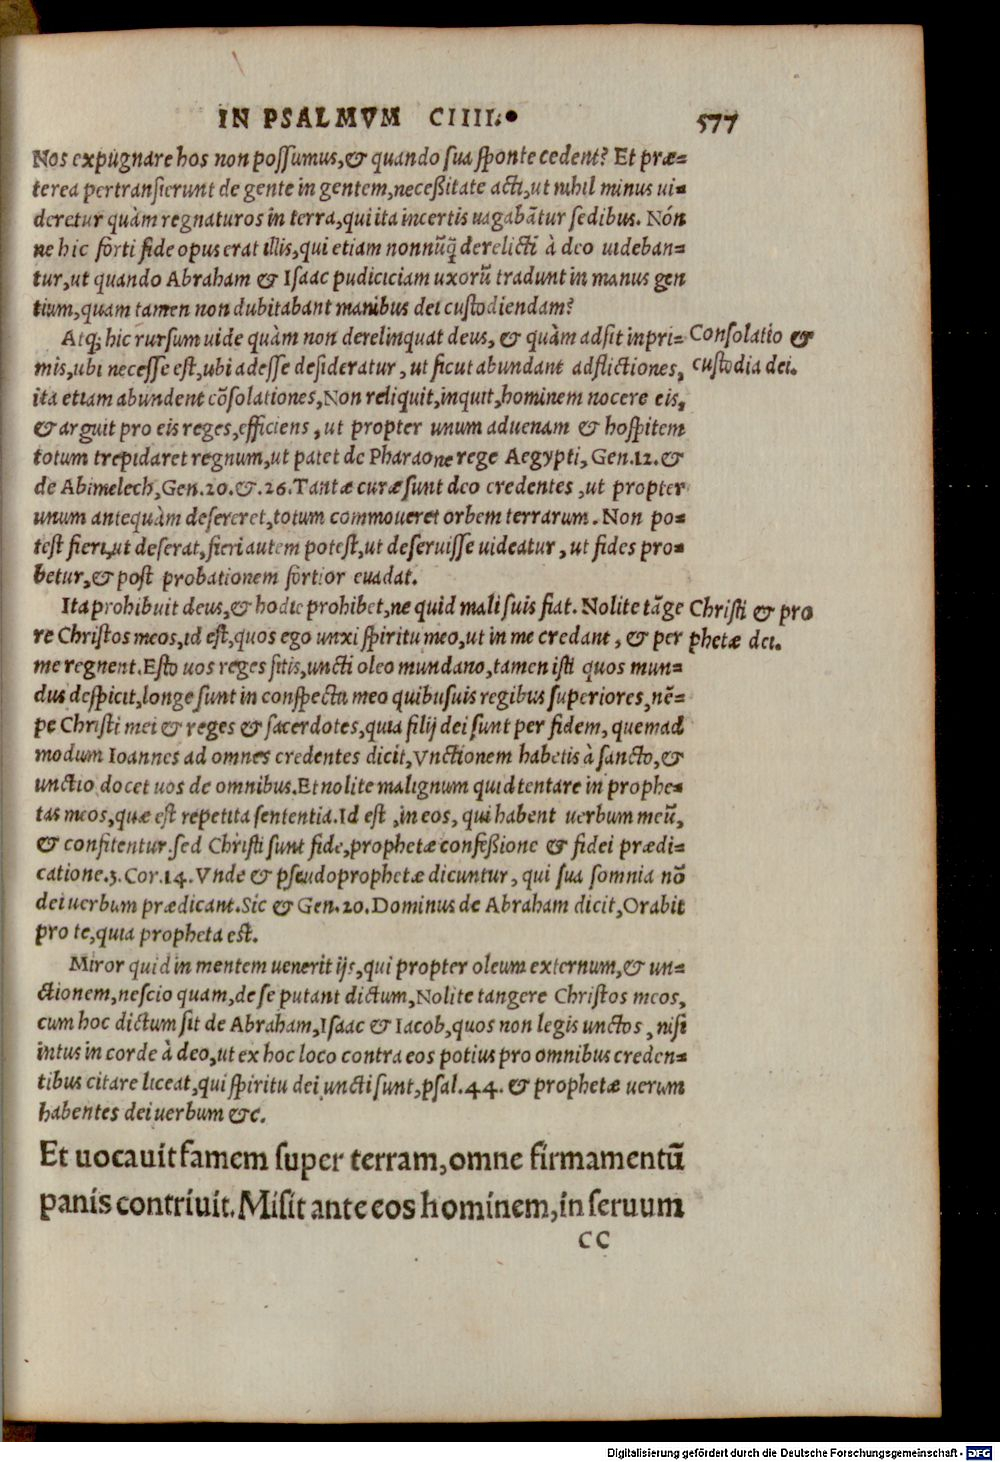 IN PSALMVM CIIII. 577
Nos expugnare hos non possumus, & quando sua sponte cedent? Et præ-
terea pertransierunt de gente in gentem, necessitate acti, ut nihil minus ui-
deretur quàm regnaturos in terra, qui ita incertis uagabãtur sedibus. Nón
ne hic forti fide opus erat illis, qui etiam nonnũq̃ derelicti à deo uideban-
tur, ut quando Abraham & Isaac pudiciciam uxorũ tradunt in manus gen
tium, quam tamen non dubitabant manibus dei custodiendam?
Atq; hic rursum uide quàm non derelinquat deus, & quàm adsit inpri-
mis, ubi necesse est, ubi adesse desideratur, ut sicut abundant adflictiones,
ita etiam abundent cõsolationes, Non reliquit, inquit, hominem nocere eis,
& arguit pro eis reges, efficiens, ut propter unum aduenam & hospitem
totum trepidaret regnum, ut patet de Pharaone rege Aegypti, Gen. 12. &
de Abimelech, Gen. 20. &. 26. Tantæ curæ sunt deo credentes, ut propter
unum antequàm desereret, totum commoueret orbem terrarum. Non po-
test fieri, ut deserat, fieri autem potest, ut deseruisse uideatur, ut fides pro-
betur, & post probationem fortior euadat.
Consolatio &
custodia dei.
Ita prohibuit deus, & hodie prohibet, ne quid mali suis fiat. Nolite tãge
re Christos meos, id est, quos ego unxi spiritu meo, ut in me credant, & per
me regnent. Esto uos reges sitis, uncti oleo mundano, tamen isti quos mun-
dus despicit, longe sunt in conspectu meo quibusuis regibus superiores, nẽ-
pe Christi mei & reges & sacerdotes, quia filij dei sunt per fidem, quemad
modum Ioannes ad omnes credentes dicit, Vnctionem habetis à sancto, &
unctio docet uos de omnibus. Et nolite malignum quid tentare in prophe-
tas meos, quæ est repetita sententia. Id est, in eos, qui habent uerbum meũ,
& confitentur. sed Christi sunt fide, prophetæ confessione & fidei prædi-
catione. 3. Cor. 14. Vnde & pseudoprophetæ dicuntur, qui sua somnia nõ
dei uerbum prædicant. Sic & Gen. 20. Dominus de Abraham dicit, Orabit
pro te, quia propheta est.
Christi & pro
phetæ dei.
Miror quid in mentem uenerit ijs, qui propter oleum externum, & un-
ctionem, nescio quam, de se putant dictum, Nolite tangere Christos meos,
cum hoc dictum sit de Abraham, Isaac & Iacob, quos non legis unctos, nisi
intus in corde à deo, ut ex hoc loco contra eos potius pro omnibus creden-
tibus citare liceat, qui spiritu dei uncti sunt, psal. 44. & prophetæ uerum
habentes dei uerbum &c.
Et uocauit famem super terram, omne firmamentũ
panis contriuit. Misit ante eos hominem, in seruum
CC
Digitalisierung gefördert durch die Deutsche Forschungsgemeinschaft - DFG